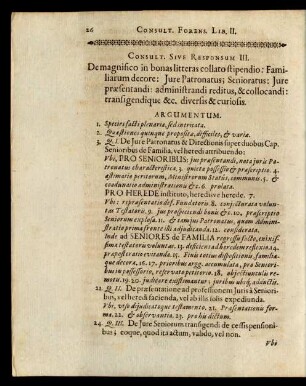 26 CONSULT. FORENS. LIB. II.
CONSULT. SIVE RESPONSUM III.
De magnifico in bonas litteras collato stipendio: Fami-
liarum decore: Jure Patronatus; Senioratus: Jure
præsentandi: administrandi reditus, & collocandi:
transigendique &c. diversis & curiosis.
ARGUMENTUM.
1. Species facti plenaria, sed intricata.
2. Quæstiones quinque proposita, difficiles, & varia.
3. Q. I. De Jure Patronatus & Directionis super duobus Cap.
Senioribus de Familia, vel heredi attribuendo:
Vbi, PRO SENIORIBUS: jus præsentandi, nota juris Pa-
tronatus characteristica, 3. quæsita possessio & præscriptio. 4.
æstimatio peritorum, Ministrorum Status, communis. 5. &
coadunatio administrationis &c. 6. probata.
PRO HEREDE instituto, herediive herede. 7.
Vbi: repræsentatio def. Fundatoris 8. conjecturata volun-
tas Testatoris. 9. jus prospiciendi bonis &c. 10. præscriptio
Seniorum explosa. 11. & tam jus Patronatus, quam admini-
stratio prima fronte illi adjudicanda. 12. considerata.
Inde ad SENIORES de FAMILIA regressu facto, enixissi-
ma testatoris voluntas. 13. deficiens ad heredem reflexio. 14.
præpostera te evitanda. 15. Finis totius dispositionis, familia-
que decora. 16. 17. prioribus argg. accumulata, pro Seniori-
bus in possessorio, reservato petitorio. 18. objectiunculis re-
motis. 19. 20. judicare existimantur: juribus ubiq; adductis.
21. Q. II. De præsentatione ad professionem Juris à Seniori-
bus, vel heredi facienda, vel ab illis solis expedienda.
Vbi, vis dijudicatque testamento. 21. Præsentationis for-
ma. 22. & observantia. 23. probis dictum.
24. Q. III. De Jure Seniorum transigendi de cessis pensioni-
bus; eoque, quod ita actum, valido, vel non.
Vbi